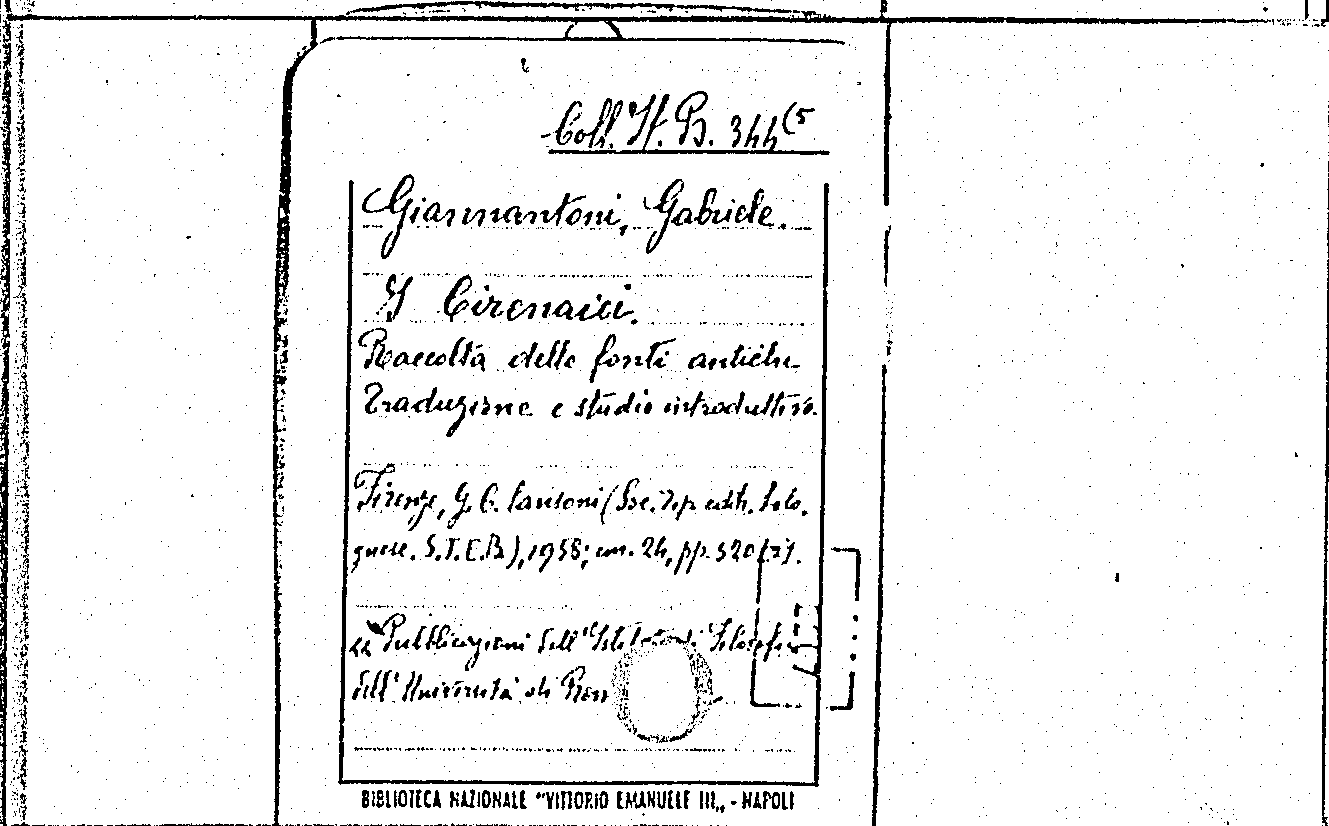 Coll. It. B. 344(5
Giannantoni, Gabriele.
I Cirenaici.
Raccolta delle fonti antiche
Traduzione e studio introduttivo.
Firenze, G. C. Sansoni (Soc. Tip. edit. bolo-
gnese. S.T.E.B.), 1958; cm. 24, pp. 520 (2).
Pubblicazioni dell'Istituto di Filosofia
dell'Università di Rom
BIBLIOTECA NAZIONALE "VITTORIO EMANUELE III„ - NAPOLI